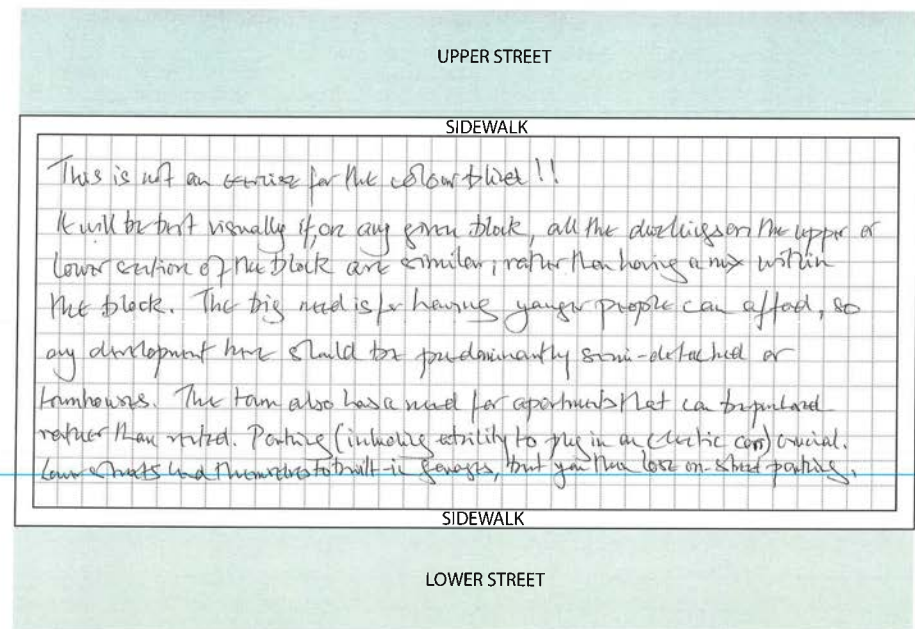 UPPER STREET
SIDEWALK
This is not an exercise for the colour blind!!
It will be best visually if, on any given block, all the dwellings on the upper or
lower section of the block are similar, rather than having a mix within
the block. The big need is for housing younger people can afford, so
any development here should be predominantly semi-detached or
townhouses. The town also has a need for apartments that can be purchased
rather than rented. Parking (including ability to plug in an electic car) crucial.
Lower streets lend themselves to built-in garages, but you then lose on-street parking.
SIDEWALK
LOWER STREET